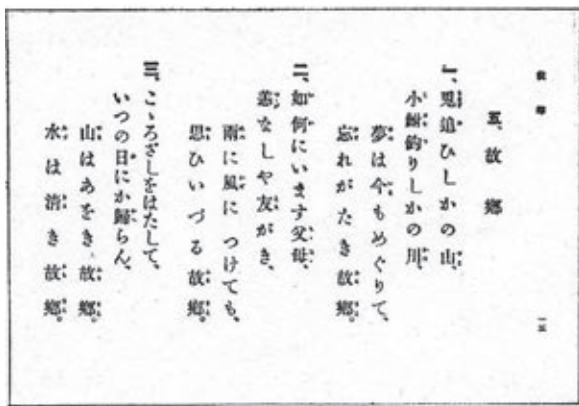 故郷
五、故郷
一、兎追ひしかの山、
小鮒釣りしかの川、
夢は今もめぐりて、
忘れがたき故郷。
二、如何にいます父母、
恙なしや友がき、
雨に風に つけても、
思ひいづる故郷。
三、こゝろざしをはたして、
いつの日にか歸らん、
山はあをき故郷。
水は清き故郷。